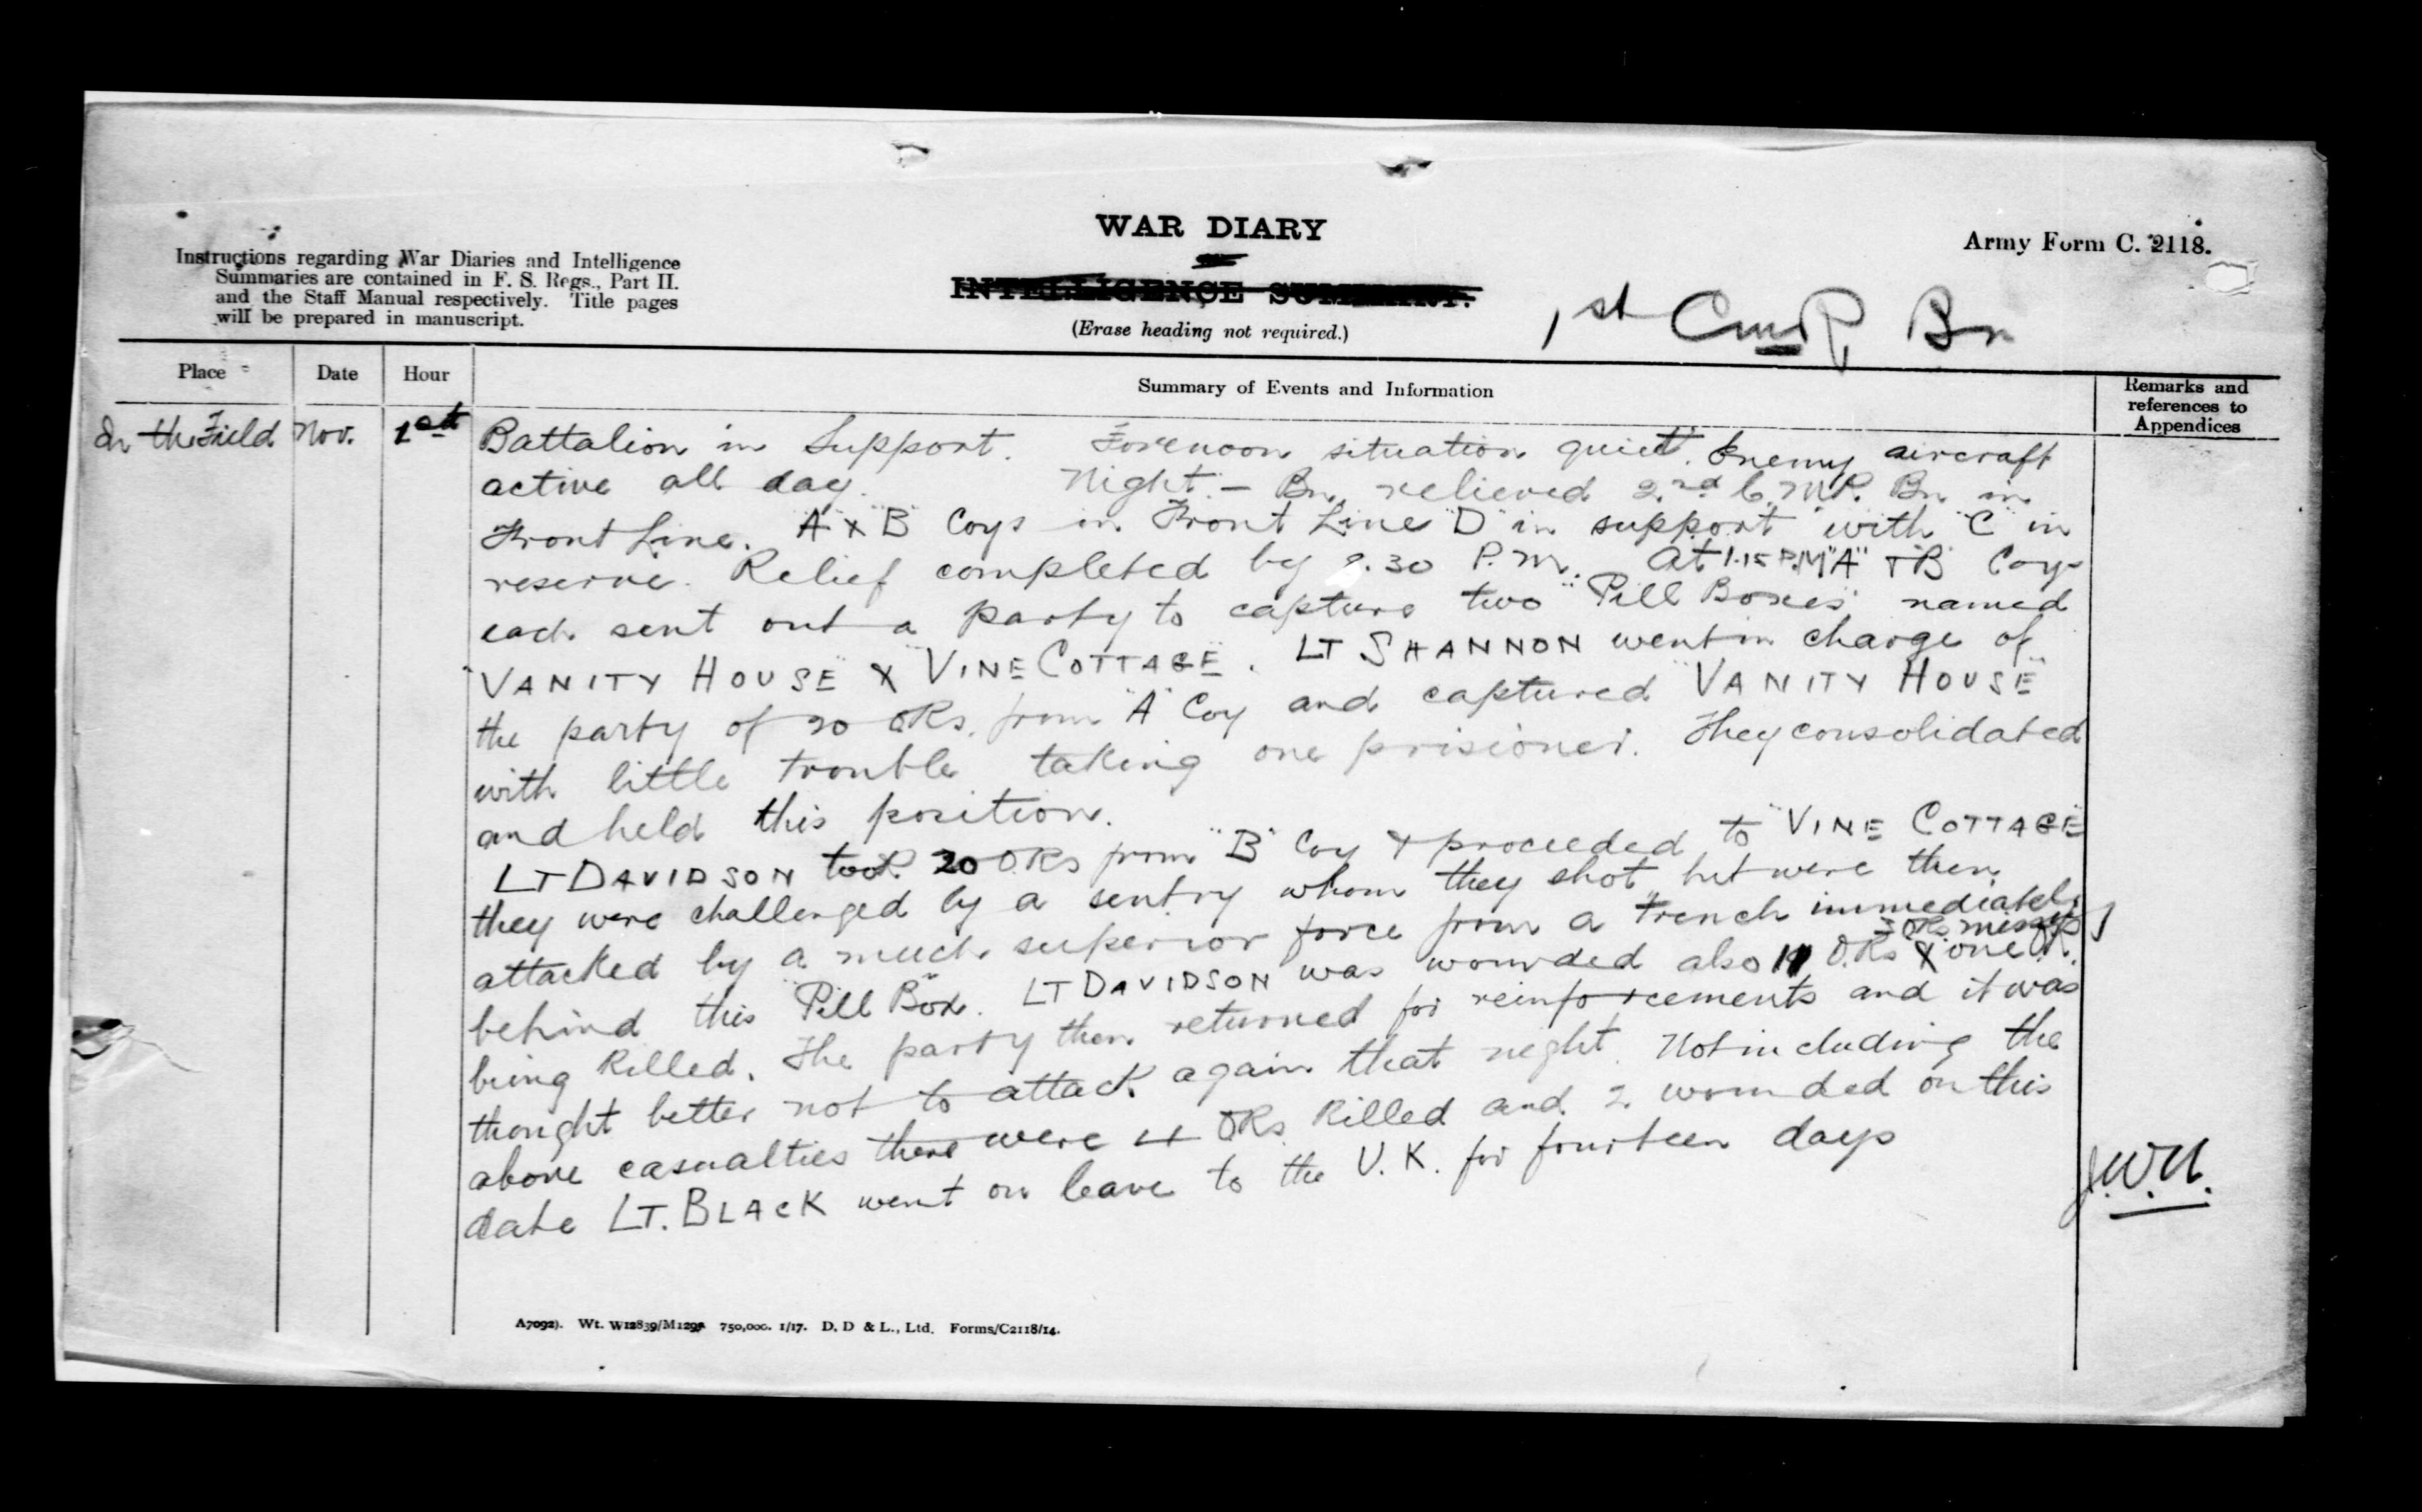 WAR DIARY
Army Form C. 2118.
Instructions regarding War Diaries and Intelligence
Summaries are contained in F. S. Regs., Part II.
and the Staff Manual respectively. Title pages
will be prepared in manuscript.
INTELLIGENCE SUMMARY.
(Erase heading not required.)
1st CMR Bn
Place Date Hour Summary of Events and Information Remarks and
references to
Appendices
In the Field Nov. 1st Battalion in Support. Forenoon situation quiet. Enemy aircraft
active all day. Night. — Bn. relieved 2nd C.M.R. Bn in
Front Line. "A" & "B" Coys in Front Line "D" in support with "C" in
reserve. Relief completed by 9.30 P.M. At 1.15 P.M "A" + "B" Coys
each sent out a party to capture two "Pill Boxes" named
"VANITY HOUSE" & "VINE COTTAGE". LT SHANNON went in charge of
the party of 20 ORs. from "A" Coy and captured "VANITY HOUSE"
with little trouble taking one prisioner. They consolidated
and held this position.
LT DAVIDSON took 20 O.Rs from "B" Coy & proceeded to "VINE COTTAGE"
they were challenged by a sentry whom they shot, but were then
attacked by a much superior force from a trench immediately
behind this "Pill Box". LT DAVIDSON was wounded also 11 O.Rs 3 ORs missing & one O.R.
being killed. The party then returned for reinforcements and it was
thought better not to attack again that night. Not including the
above casualties there were 4 ORs. killed and 2 wounded on this
date LT. BLACK went on leave to the U.K. for fourteen days
J.W.H.
A7092). Wt. W12839/M1293 750,000. 1/17. D. D & L., Ltd. Forms/C2118/14.